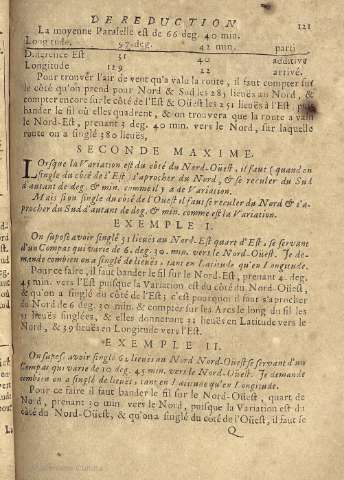 DE REDUCTION 121
La moyenne Paralelle est de 66 deg. 40 min.
Longitude, 97 deg. 42 min. parti
Diference Est 31 40 additive
Longitude 129 22 arrivé.
Pour trouver l'air de vent qu'a valu la route, il faut compter sur
le côté qu'on prend pour Nord & Sud les 285 lieuës au Nord, &
compter encore sur le côté de l'Est & Oüest les 251 lieuës à l'Est
bander le fil où elles quadrent, & on trouvera que la route a valu
le Nord-Est, prenant 3 deg. 40 min. vers le Nord, sur laquelle
route on a singlé 380 lieuës,
SECONDE MAXIME.
LOrsque la Variation est du côté du Nord-Oüest, il faut (quand on
single du côté de l'Est) s'aprocher du Nord, & se reculer du Sud
d'autant de deg. & min. comme il y a de Variation.
Mais si on single du côté de l'Ouest il faut se reculer du Nord & s'a-
procher du Sud d'autant de deg. & min. comme est la Variation.
EXEMPLE I.
On supose avoir singlé 51 lieuës au Nord-Est quart d'Est, se servant
d'un Compas qui varie de 6 deg. 30 min. vers le Nord-Oüest. Je de-
mande combien on a singlé de lieuës, tant en Latitude qu'en Longitude.
Pour ce faire, il faut bander le fil sur le Nord-Est, prenant 4 deg.
45 min. vers l'Est puisque la Variation est du côté du Nord-Oüest,
& qu'on a singlé du côté de l'Est; c'est pourquoi il faut s'aprocher
du Nord de 6 deg. 30 min. & compter sur les Arcs le long du fil les
51 lieuës singlées, & elles donneront 33 lieuës en Latitude vers le
Nord, & 39 lieuës en Longitude vers l'Est.
EXEMPLE II.
On supose avoir singlé 62 lieuës au Nord Nord-Oüest se servant d'un
Compas qui varie de 10 deg. 45 min. vers le Nord-Oüest. Je demande
combien on a singlé de lieuës, tant en Latitude qu'en Longitude.
Pour ce faire il faut bander le fil sur le Nord-Oüest, quart de
Nord, prenant 30 min. vers le Nord, puisque la Variation est du
côté du Nord-Oüest, & qu'on a singlé du côté de l'Oüest, il faut se
Q